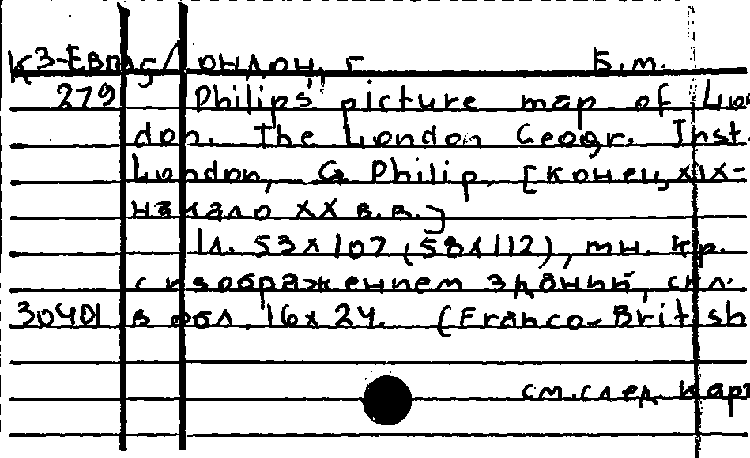 К3-Евр.13/Лондон, г. Б.м.
279 Philips' picture map of Lon-
don. The London Geogr. Inst.
London, G. Philip. [конец XIX-
начало XX в.в.]
1л. 53х107 (58х112), мн. кр.
с изображением зданий, скл.
30401 в обл. 16х24. (Franco-British
см. след. карт